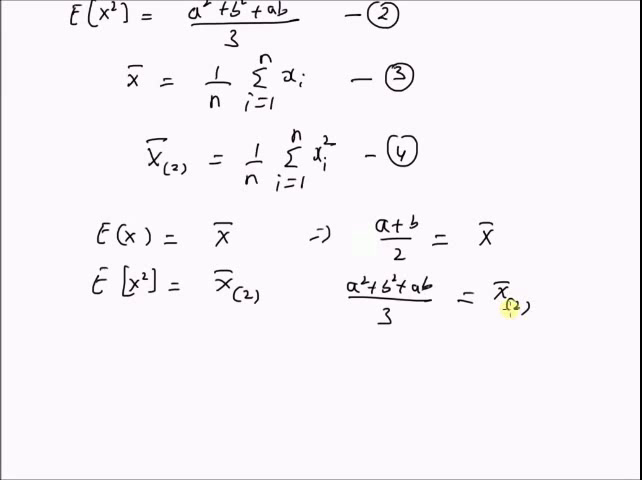 E[x²] = a²+b²+ab / 3 — ②
x̄ = 1/n Σ_{i=1}^{n} xᵢ — ③
X̄₍₂₎ = 1/n Σ_{i=1}^{n} xᵢ² — ④
E(x) = x̄ ⇒ a+b / 2 = x̄
E[x²] = x̄₍₂₎ a²+b²+ab / 3 = x̄₍₂₎